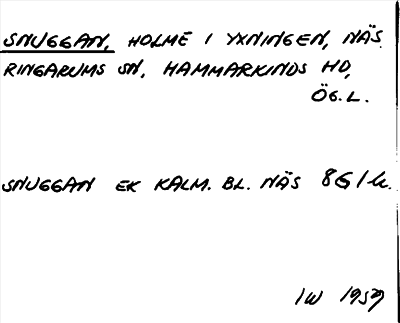 SNUGGAN, HOLME I YXNINGEN, NÄS.
RINGARUMS SN, HAMMARKINDS HD,
ÖG.L.
SNUGGAN EK KALM. BL. NÄS 8G1h.
IW 1959